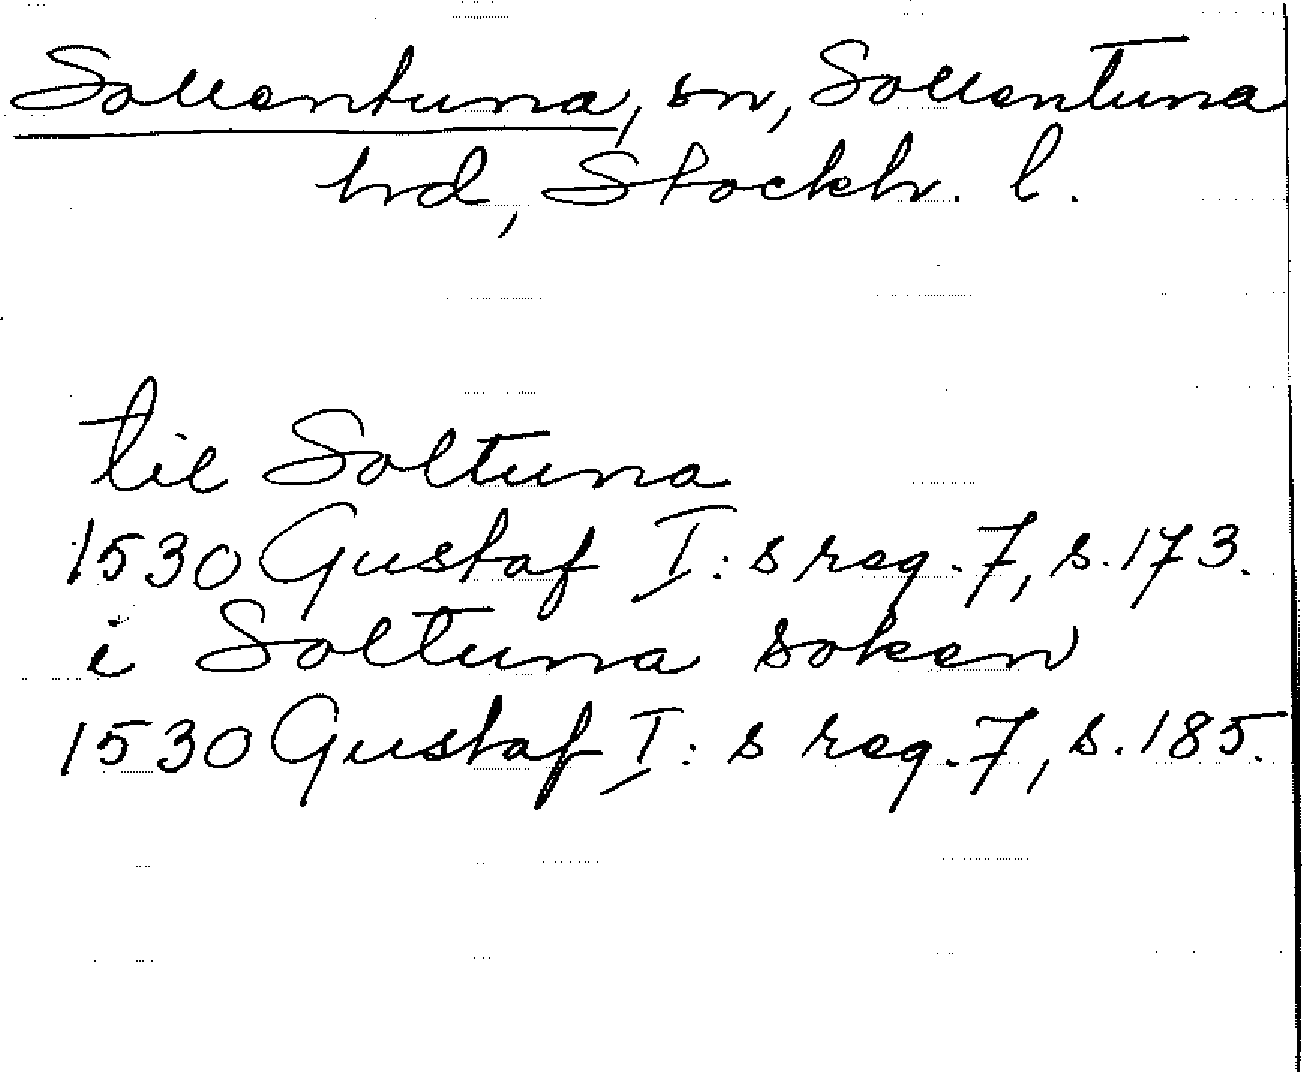 Sollentuna, sn, Sollentuna
hd, Stockh. l.
til Soltuna
1530 Gustaf I:s reg. 7, s. 173.
i Soltuna soken
1530 Gustaf I:s reg. 7, s. 185.